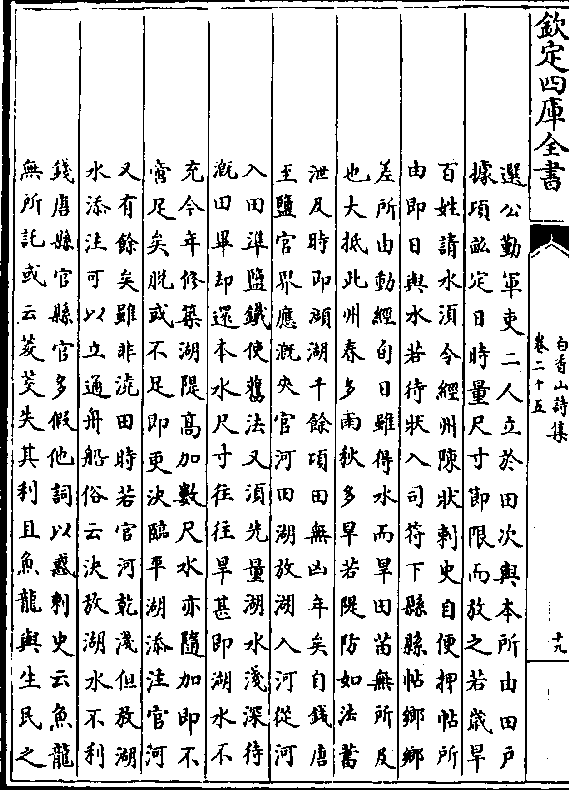 欽定四庫全書
白香山詩集
卷二十五
十九
選公勤軍吏二人立於田次與本所由田戶
據頃畝定日時量尺寸即限而放之若歲旱
百姓請水須令經州陳狀刺史自便押帖所
由即日與水若待狀入司符下縣縣帖鄉鄉
差所由動經旬日雖得水而旱田苗無所及
也大抵此州春多雨秋多旱若隄防如法蓄
泄及時即瀕湖千餘頃田無凶年矣自錢唐
至鹽官界應溉夾官河田湖放湖入河從河
入田準鹽鐵使舊法又須先量湖水淺深待
溉田畢却還本水尺寸往往旱甚即湖水不
充今年修築湖隄高加數尺水亦隨加即不
啻足矣脫或不足即更決臨平湖添注官河
又有餘矣雖非澆田時若官河乾淺但放湖
水添注可以立通舟船俗云決放湖水不利
錢唐縣官縣官多假他詞以惑刺史云魚龍
無所託或云菱茭失其利且魚龍與生民之